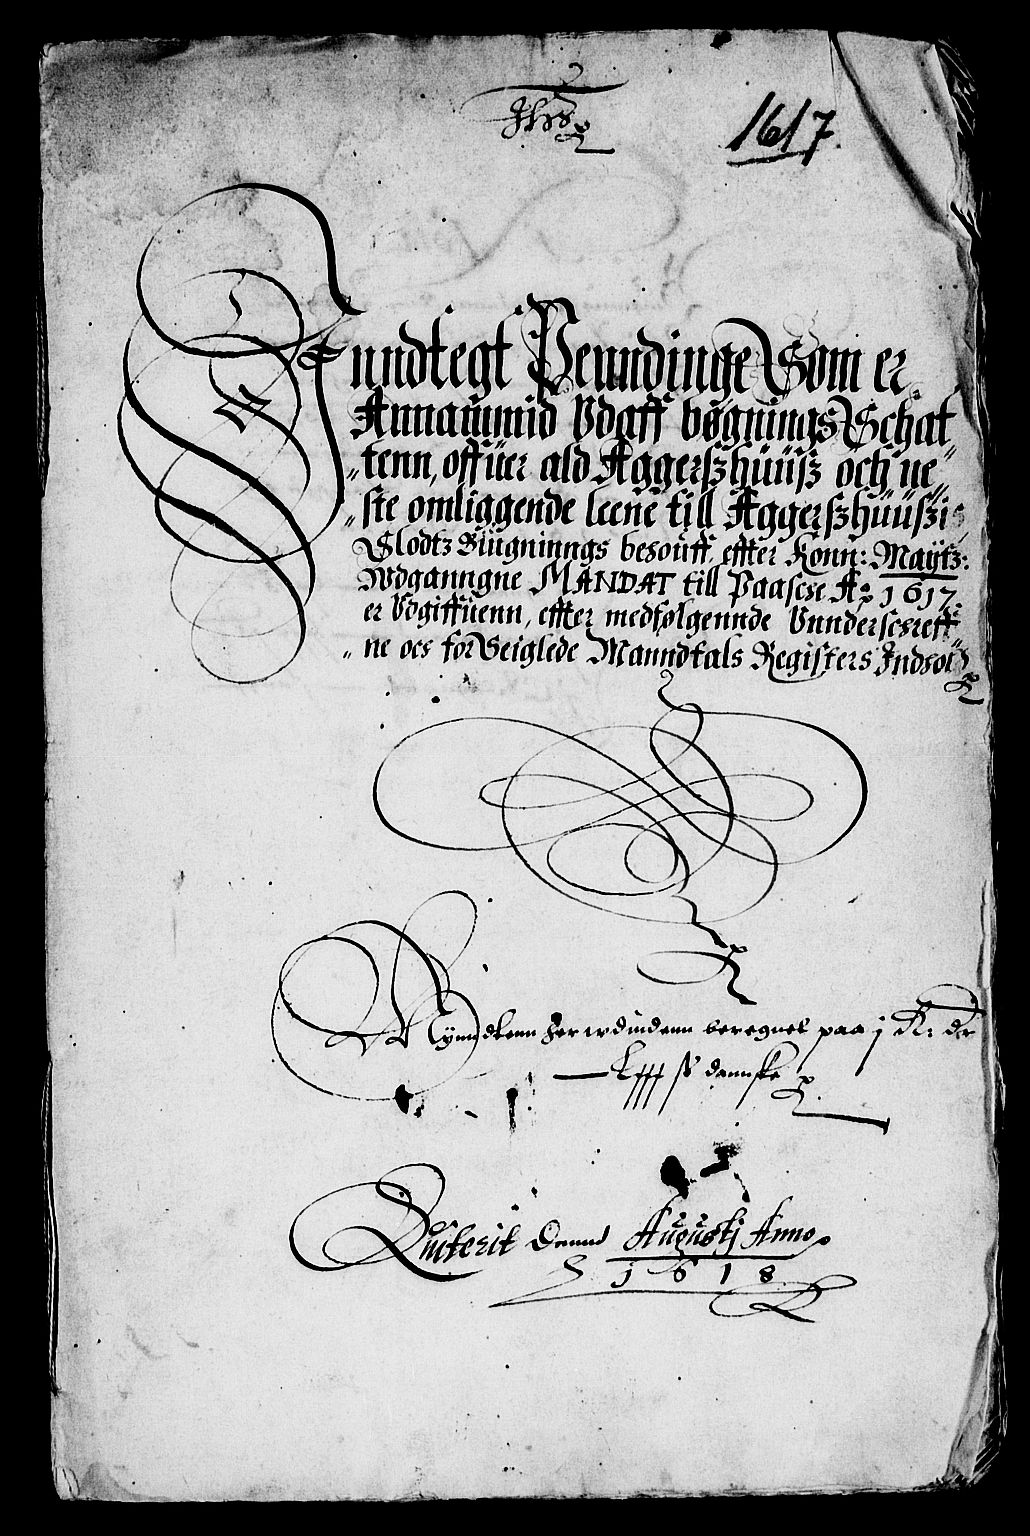 Jhs
1617
Inndtegt Penndinge Som er
Annammid Vdaff bøgnings Schat„
„tenn, offuer ald Aggerszhuusz och ne„
„ste omliggende leene till Aggerszhuuszis
Slodtz Bÿugninngs behouff, effter Konn: Maÿtz:
Wdganngne MANDAT till Paasche Ao 1617.
er Vdgiffuenn, effter medfølgennde Vnnderschreff„
„ne och for Seiglede Manndtals Registers Indhold
Myndtenn her wdindenn beregnet paa j R. dr
Lxxx ß dannske
Quiterit Dend Augustj Anno
1618